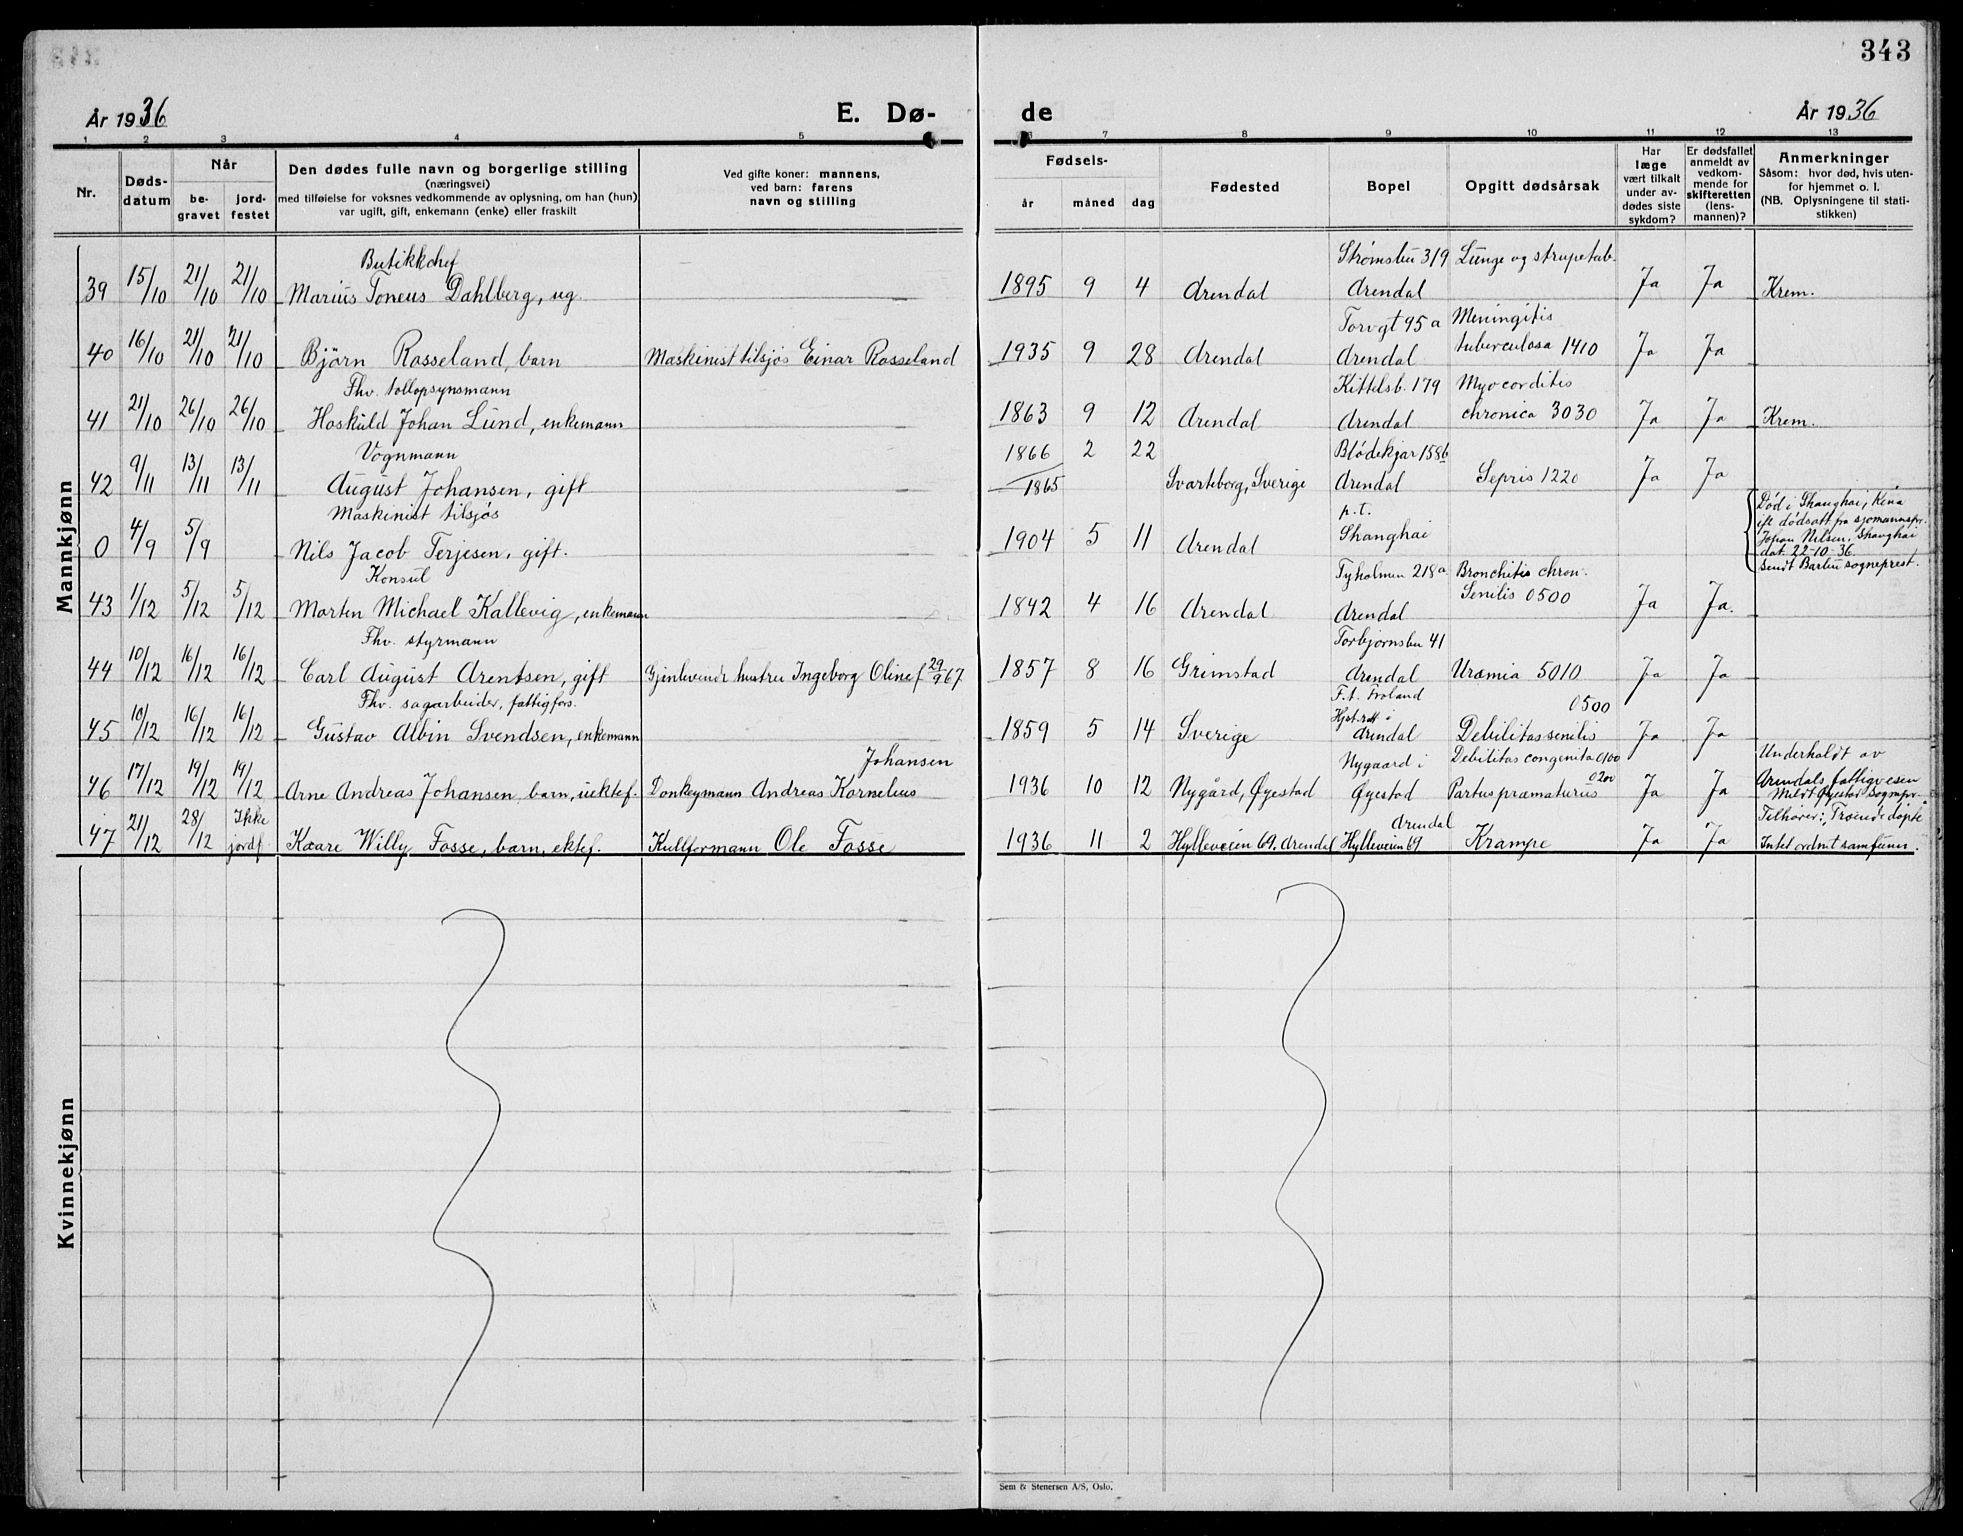 343
År 1936
E. Dø-
de
År 1936
1 2 3 4 5 6 7 8 9 10 11 12 13
Nr.
Døds-
datum
Når
be-
gravet
jord-
festet
Den dødes fulle navn og borgerlige stilling
(næringsvei)
med tilføielse for voksnes vedkommende av oplysning, om han (hun)
var ugift, gift, enkemann (enke) eller fraskilt
Ved gifte koner: mannens,
ved barn: farens
navn og stilling
Fødsels-
år måned dag
Fødested
Bopel
Opgitt dødsårsak
Har
læge
vært tilkalt
under av-
dødes siste
sykdom?
Er dødsfallet
anmeldt av
vedkom-
mende for
skifteretten
(lens-
mannen)?
Anmerkninger
Såsom: hvor død, hvis uten-
for hjemmet o. l.
(NB. Oplysningene til stati-
stikken)
Mannkjønn
Butikkchef Strømsbu 319 Lunge og strupetub.
39 15/10 21/10 21/10 Marius Toneus Dahlberg, ug. 1895 9 4 Arendal Arendal Ja Ja Krem.
Torvgt 95a Meningitis
40 16/10 21/10 21/10 Björn Rosseland, barn Maskinist tilsjøs Einar Rosseland 1935 9 28 Arendal Arendal tuberculosa 1410 Ja Ja
Fhv. tollopsynsmann Kittelsb. 179 Myocorditis
41 21/10 26/10 26/10 Hoskuld Johan Lund, enkemann 1863 9 12 Arendal Arendal chronica 3030 Ja Ja Krem.
Vognmann 1866 2 22 Blødekjær 158b
42 9/11 13/11 13/11 August Johansen, gift 1865 Svarteborg, Sverige Arendal Sepsis 1220 Ja Ja
Maskinist tilsjøs p.t.
0 4/9 5/9 Nils Jacob Terjesen, gift. 1904 5 11 Arendal Shanghai
Død i Shanghai, Kina
ift dødsatt fra sjømannspr.
Nilsen, Shanghai
dat. 22-10-36.
sendt Barbu sogneprest.
Konsul Tyholmen 218a Bronchitis chron.
43 1/12 5/12 5/12 Morten Michael Kallevig, enkemann 1842 4 16 Arendal Arendal Senilis 0500 Ja Ja.
Fhv. styrmann Torbjørnsbu 41
44 10/12 16/12 16/12 Carl August Arentsen, gift Gjenlevende hustru Ingeborg Oline f 29/9 67 1857 8 16 Grimstad Arendal Uræmia 5010 Ja Ja
Fhv. sagarbeider, fattigfors. F.t. Froland 0500
45 10/12 16/12 16/12 Gustav Albin Svendsen, enkemann 1859 5 14 Sverige Hjst.rett i Arendal Debilitas senilis Ja Ja
Johansen Nygaard i Debilitas congenita 0100 Underholdt av
46 17/12 19/12 19/12 Arne Andreas Johansen, barn, uektef. Donkeymann Andreas Kornelius 1936 10 12 Nygård, Øyestad Øyestad Partus præmaturus 0200 Ja Ja Arendals fattigvesen
Meldt Øyestad sognepr.
47 21/12 28/12 Ikke jordf Kaare Willy Fosse, barn, ektef. Kullformann Ole Fosse 1936 11 2 Hylleveien 69, Arendal Arendal Hylleveien 69 Krampe Ja Ja Tilhører:
Intet ordnet samfunn.
Kvinnekjønn
Sem & Stenersen A/S, Oslo.